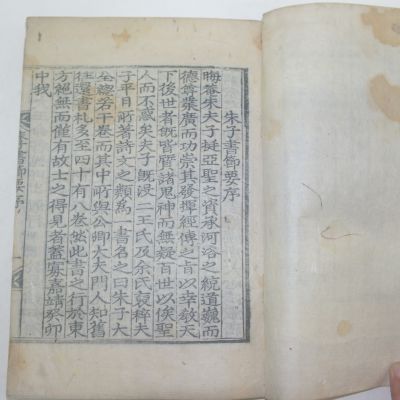 朱子書節要序
晦菴朱夫子挺亞聖之資承河洛之統道巍而
德尊業廣而功崇其發揮經傳之旨以幸教天
下後世者旣皆質諸鬼神而無疑百世以俟聖
人而不惑矣夫子旣沒二王氏及余氏裒稡夫
子平日所著詩文之類爲一書名之曰朱子大
全總若干卷而其中所與公卿大夫門人知舊
往還書札多至四十有八卷然此書之行於東
方絶無而僅有故士之得見者蓋寡嘉靖癸卯
中我